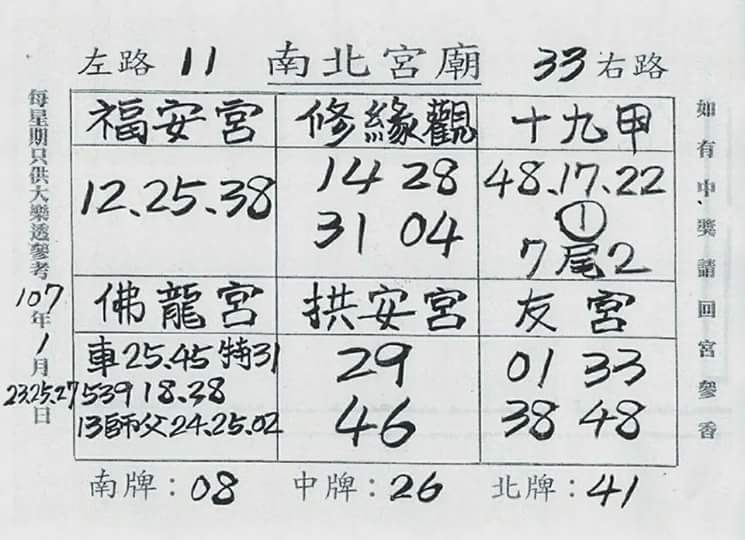 左路 11 南北宮廟 33 右路
每星期只供大樂透參考
107年1月23.25.27日
福安宮
12.25.38
修緣觀
14 28
31 04
十九甲
48.17.22
①
7尾2
佛龍宮
車25.45 特31
539 18.38
13師父24.25.02
拱安宮
29
46
友宮
01 33
38 48
如有中獎請回宮參香
南牌：08 中牌：26 北牌：41